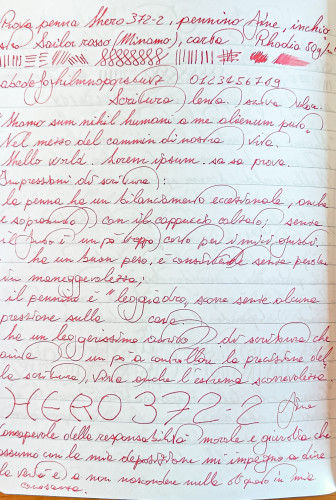 Prova penna Hero 372-2, pennino fine, inchio
stro Sailor rosso (Minamo), carta Rhodia 80g/m
abcdefghilmnopqrstuvz 0123456789
Scrittura lenta. scrittura veloce.
Homo sum nihil humani a me alienum puto.
Nel mezzo del cammin di nostra vita.
Hello world. Lorem ipsum. sa sa prova.
Impressioni di scrittura:
la penna ha un bilanciamento eccezionale, anche
(e soprattutto) con il cappuccio calzato; senza
il fusto è un po' troppo corto per i miei gusti.
ha un buon peso, è consistente senza perdere
in maneggevolezza;
il pennino è "leggiadro, scorre senza alcuna
pressione sulla carta.
ha un leggerissimo attrito di scrittura che
aiuta un po' a controllare la precisione del
la scrittura, vista anche l'estrema scorrevolezza
HERO 372-2 fine
Consapevole della responsabilità morale e giuridica che
assumo con la mia deposizione mi impegno a dire
la verità e a non nascondere nulla di quanto in mia
conoscenza.